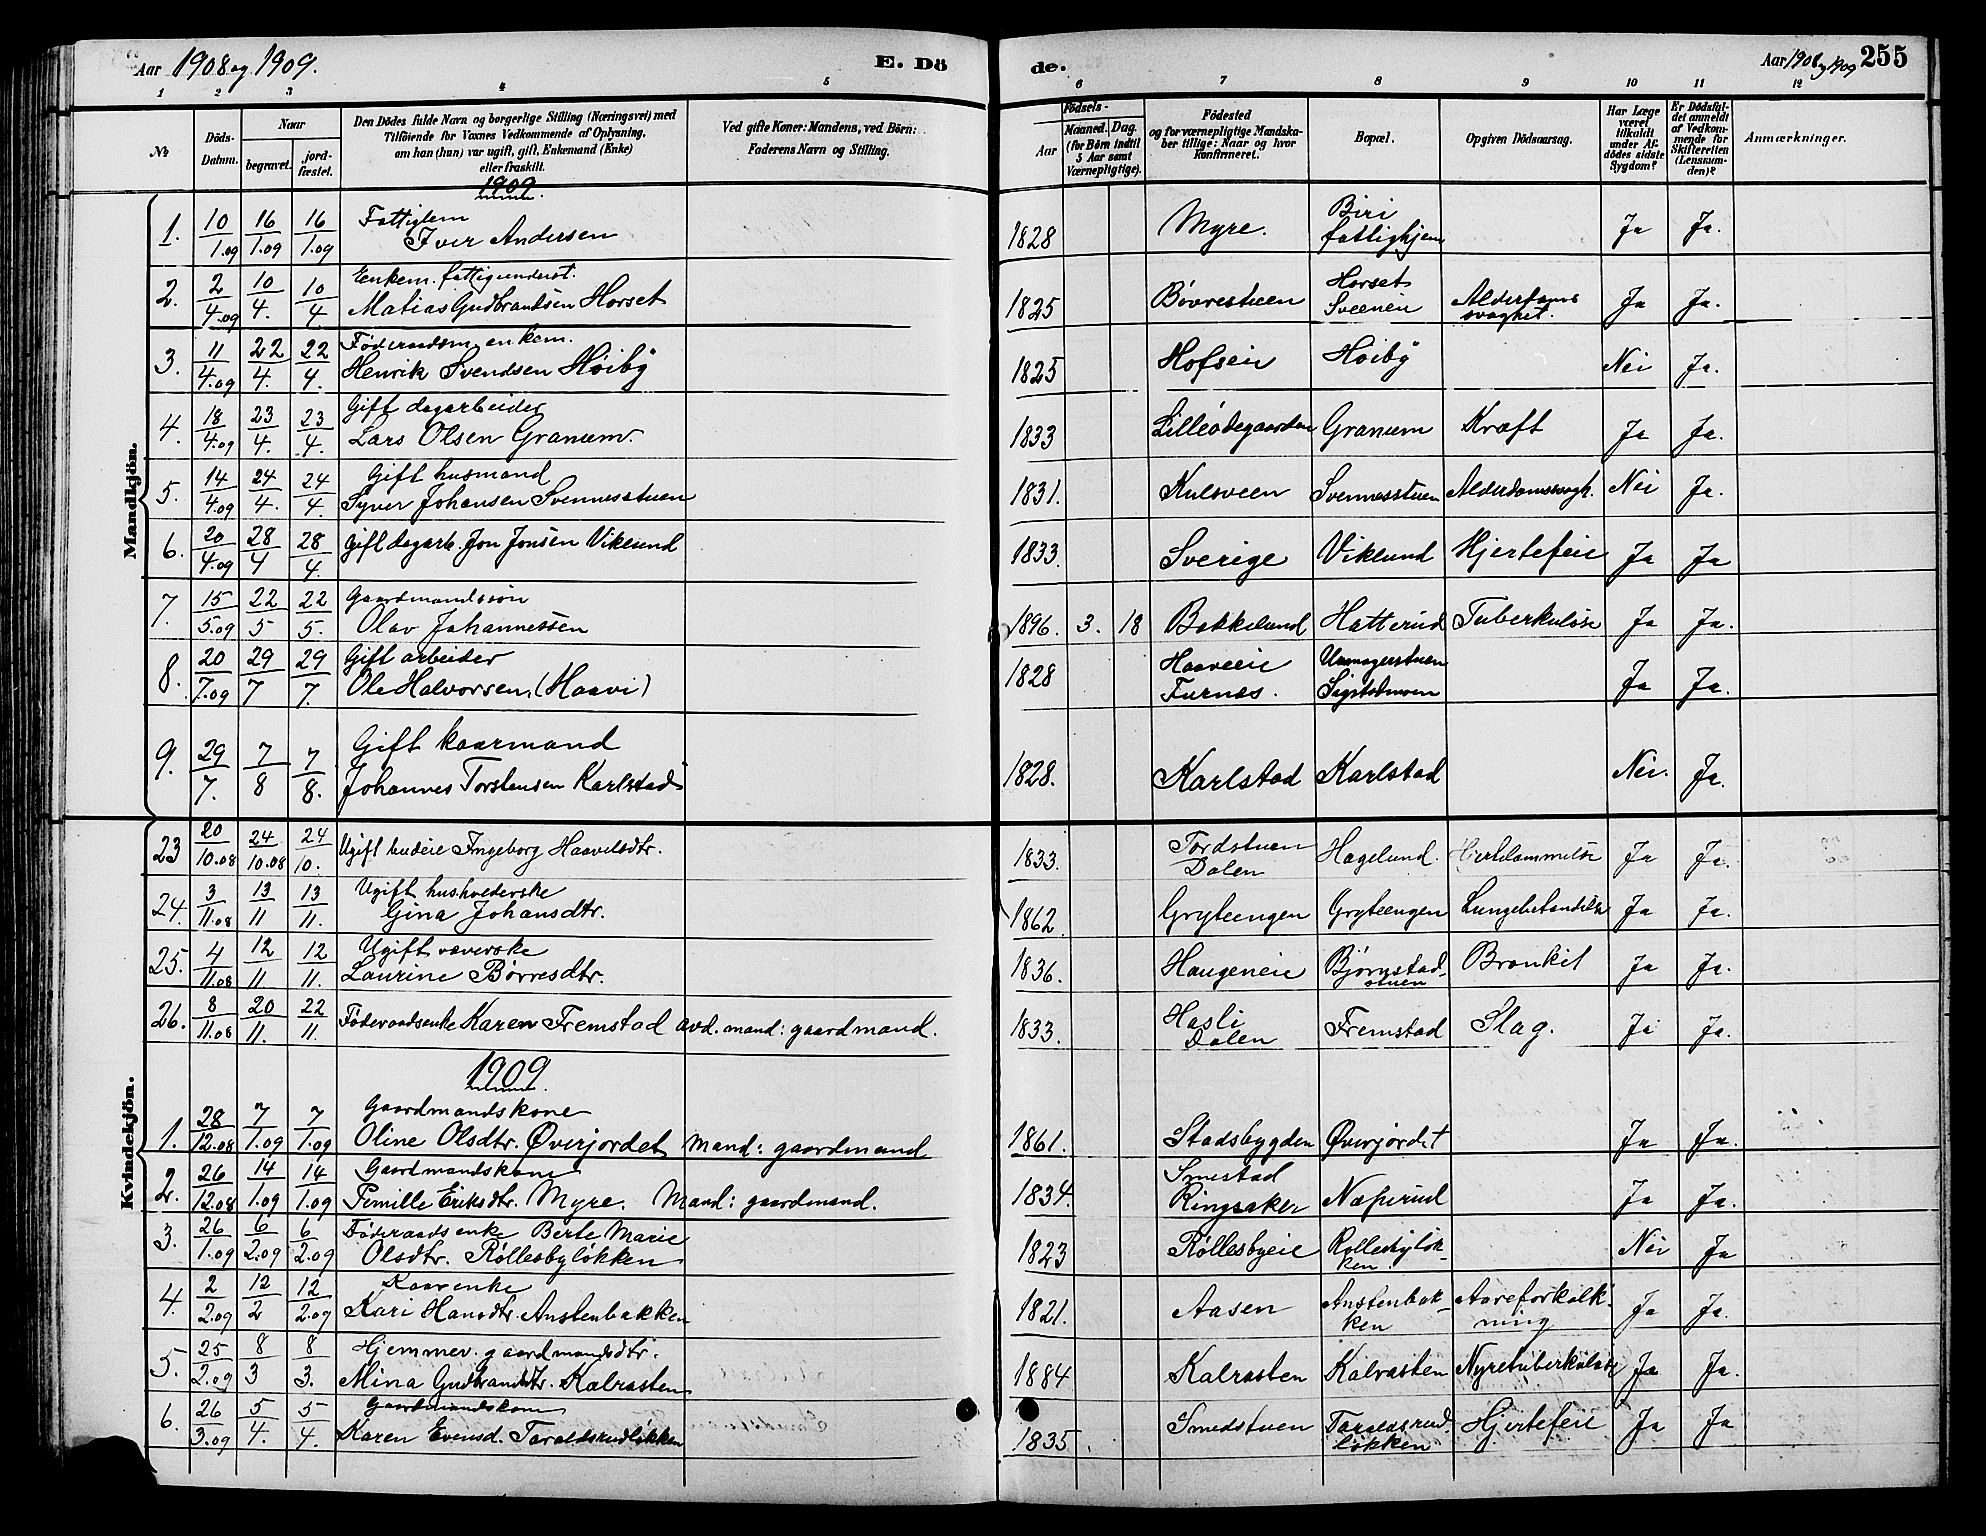 Aar 1908 og 1909.
E. Dö
de.
Aar 1908 og 1909
255
1 2 3 4 5 6 7 8 9 10 11 12
№
Döds-Datum.
Naar
begravet.
jord-fæstet.
Den Dödes fulde Navn og borgerlige Stilling (Næringsvei) med
Tilföiende for Voxnes Vedkommende af Oplysning,
om han (hun) var ugift, gift, Enkemand (Enke)
eller fraskilt.
Ved gifte Koner: Mandens, ved Börn:
Faderens Navn og Stilling.
Födsels-
Aar
Maaned. Dag.
(for Börn indtil
5 Aar samt
Værnepligtige).
Födested
og for værnepligtige Mandska-
ber tillige: Naar og hvor
konfirmeret.
Bopæl.
Opgiven Dödsaarsag.
Har Læge
været
tilkaldt
under Af-
dödes sidste
Sygdom?
Er Dödsfal-
det anmeldt
af Vedkom-
mende for
Skifteretten
(Lensman-
den)?
Anmærkninger.
Mandkjön.
1909.
1. 10/1.09 16/1.09 16/1.09 Fattiglem
Iver Andersen 1828 Myre. Biri fattighjem Ja Ja.
2. 2/4.09 10/4. 10/4. Enkem. fattigunderst.
Matias Gudbrandsen Horset 1825 Bövrestuen Horset Sveeneie Alderdomssvaghet. Ja Ja.
3. 11/4.09 22/4. 22/4. Föderaadsm. enkem.
Henrik Svendsen Höiby 1825 Hofseie Höiby Nei Ja.
4. 18/4.09 23/4. 23/4. Gift dagarbeider
Lars Olsen Granum. 1833 Lilleödegaarden Granum Kræft Ja Ja.
5. 14/4.09 24/4. 24/4. Gift husmand
Syver Johansen Svennesstuen 1831. Kulsveen Svennesstuen Alderdomssvagh. Nei Ja.
6. 20/4.09 28/4 28/4. Gift dagarb. Jon Jonsen Viklund 1833. Sverige Viklund Hjertefeie Ja Ja
7. 15/5.09 22/5 22/5. Gaardmandssön
Olav Johannessen 1896. 3. 18 Bakkelund Hatterud Tuberkulose Ja Ja.
8. 20/7.09 29/7 29/7. Gift arbeider
Ole Halvorsen (Haavi) 1828 Haaveie Furnes. Ja Ja.
9. 29/7. 7/8 7/8. Gift kaarmand
Johannes Torstensen Karlstad 1828. Karlstad Karlstad Nei. Ja.
Kvindekjön.
23 20/10.08 24/10.08 24/10. Ugift budeie Ingeborg Haavelsdtr. 1833. Tordstuen Dalen Hagelund. Hjertelammelse Ja Ja.
24. 3/11.08 13/11 13/11. Ugift husholderske
Gina Johansdtr. 1862. Gryteengen Gryteengen Lungebetændelse Ja Ja.
25. 4/11.08 12/11 12/11. Ugift væverske
Laurine Börresdtr. 1836. Haugeneie Björnstadstuen Bronkit Ja Ja.
26. 8/11.08 20/11. 22/11. Föderaadsenke Karen Fremstad avd. mand: gaardmand. 1833. Hasli Dalen Fremstad Slag. Ja Ja.
1909.
1. 28/12.08 7/1.09 7/1.09 Gaardmandskone
Oline Olsdtr. Överjordet Mand: gaardmand 1861. Stadsbygden Överjordet Ja Ja.
2. 26/12.08 14/1.09 14/1.09 Gaardmandskone
Pernille Eriksdtr. Myre. Mand: gaardmand. 1834. Smestad Ringsaker Næperud Ja Ja.
3. 26/1.09 6/2.09 6/2.09 Föderaadsenke Berte Marie
Olsdtr. Röllesbylökken 1823 Röllesbyeie Rollesbylök-ken Nei Ja
4. 2/2.09 12/2 12/2.09 Kaarenke
Kari Hansdtr. Anstenbakken 1821. Aasen Anstenbak-ken Aareforkalk-ning Ja Ja.
5. 25/2.09 8/3 8/3. Hjemmev. gaardmandsdtr.
Mina Gudbrandsdtr. Kalrasten 1884 Kalrasten Kalrasten Nyretuberkulose Ja Ja.
6. 26/3.09 5/4. 5/4. Gaardmandskone
Karen Evensd. Taraldsrudlökken 1835. Smedstuen Taraldsrud-lökken Hjertefeie Ja Ja